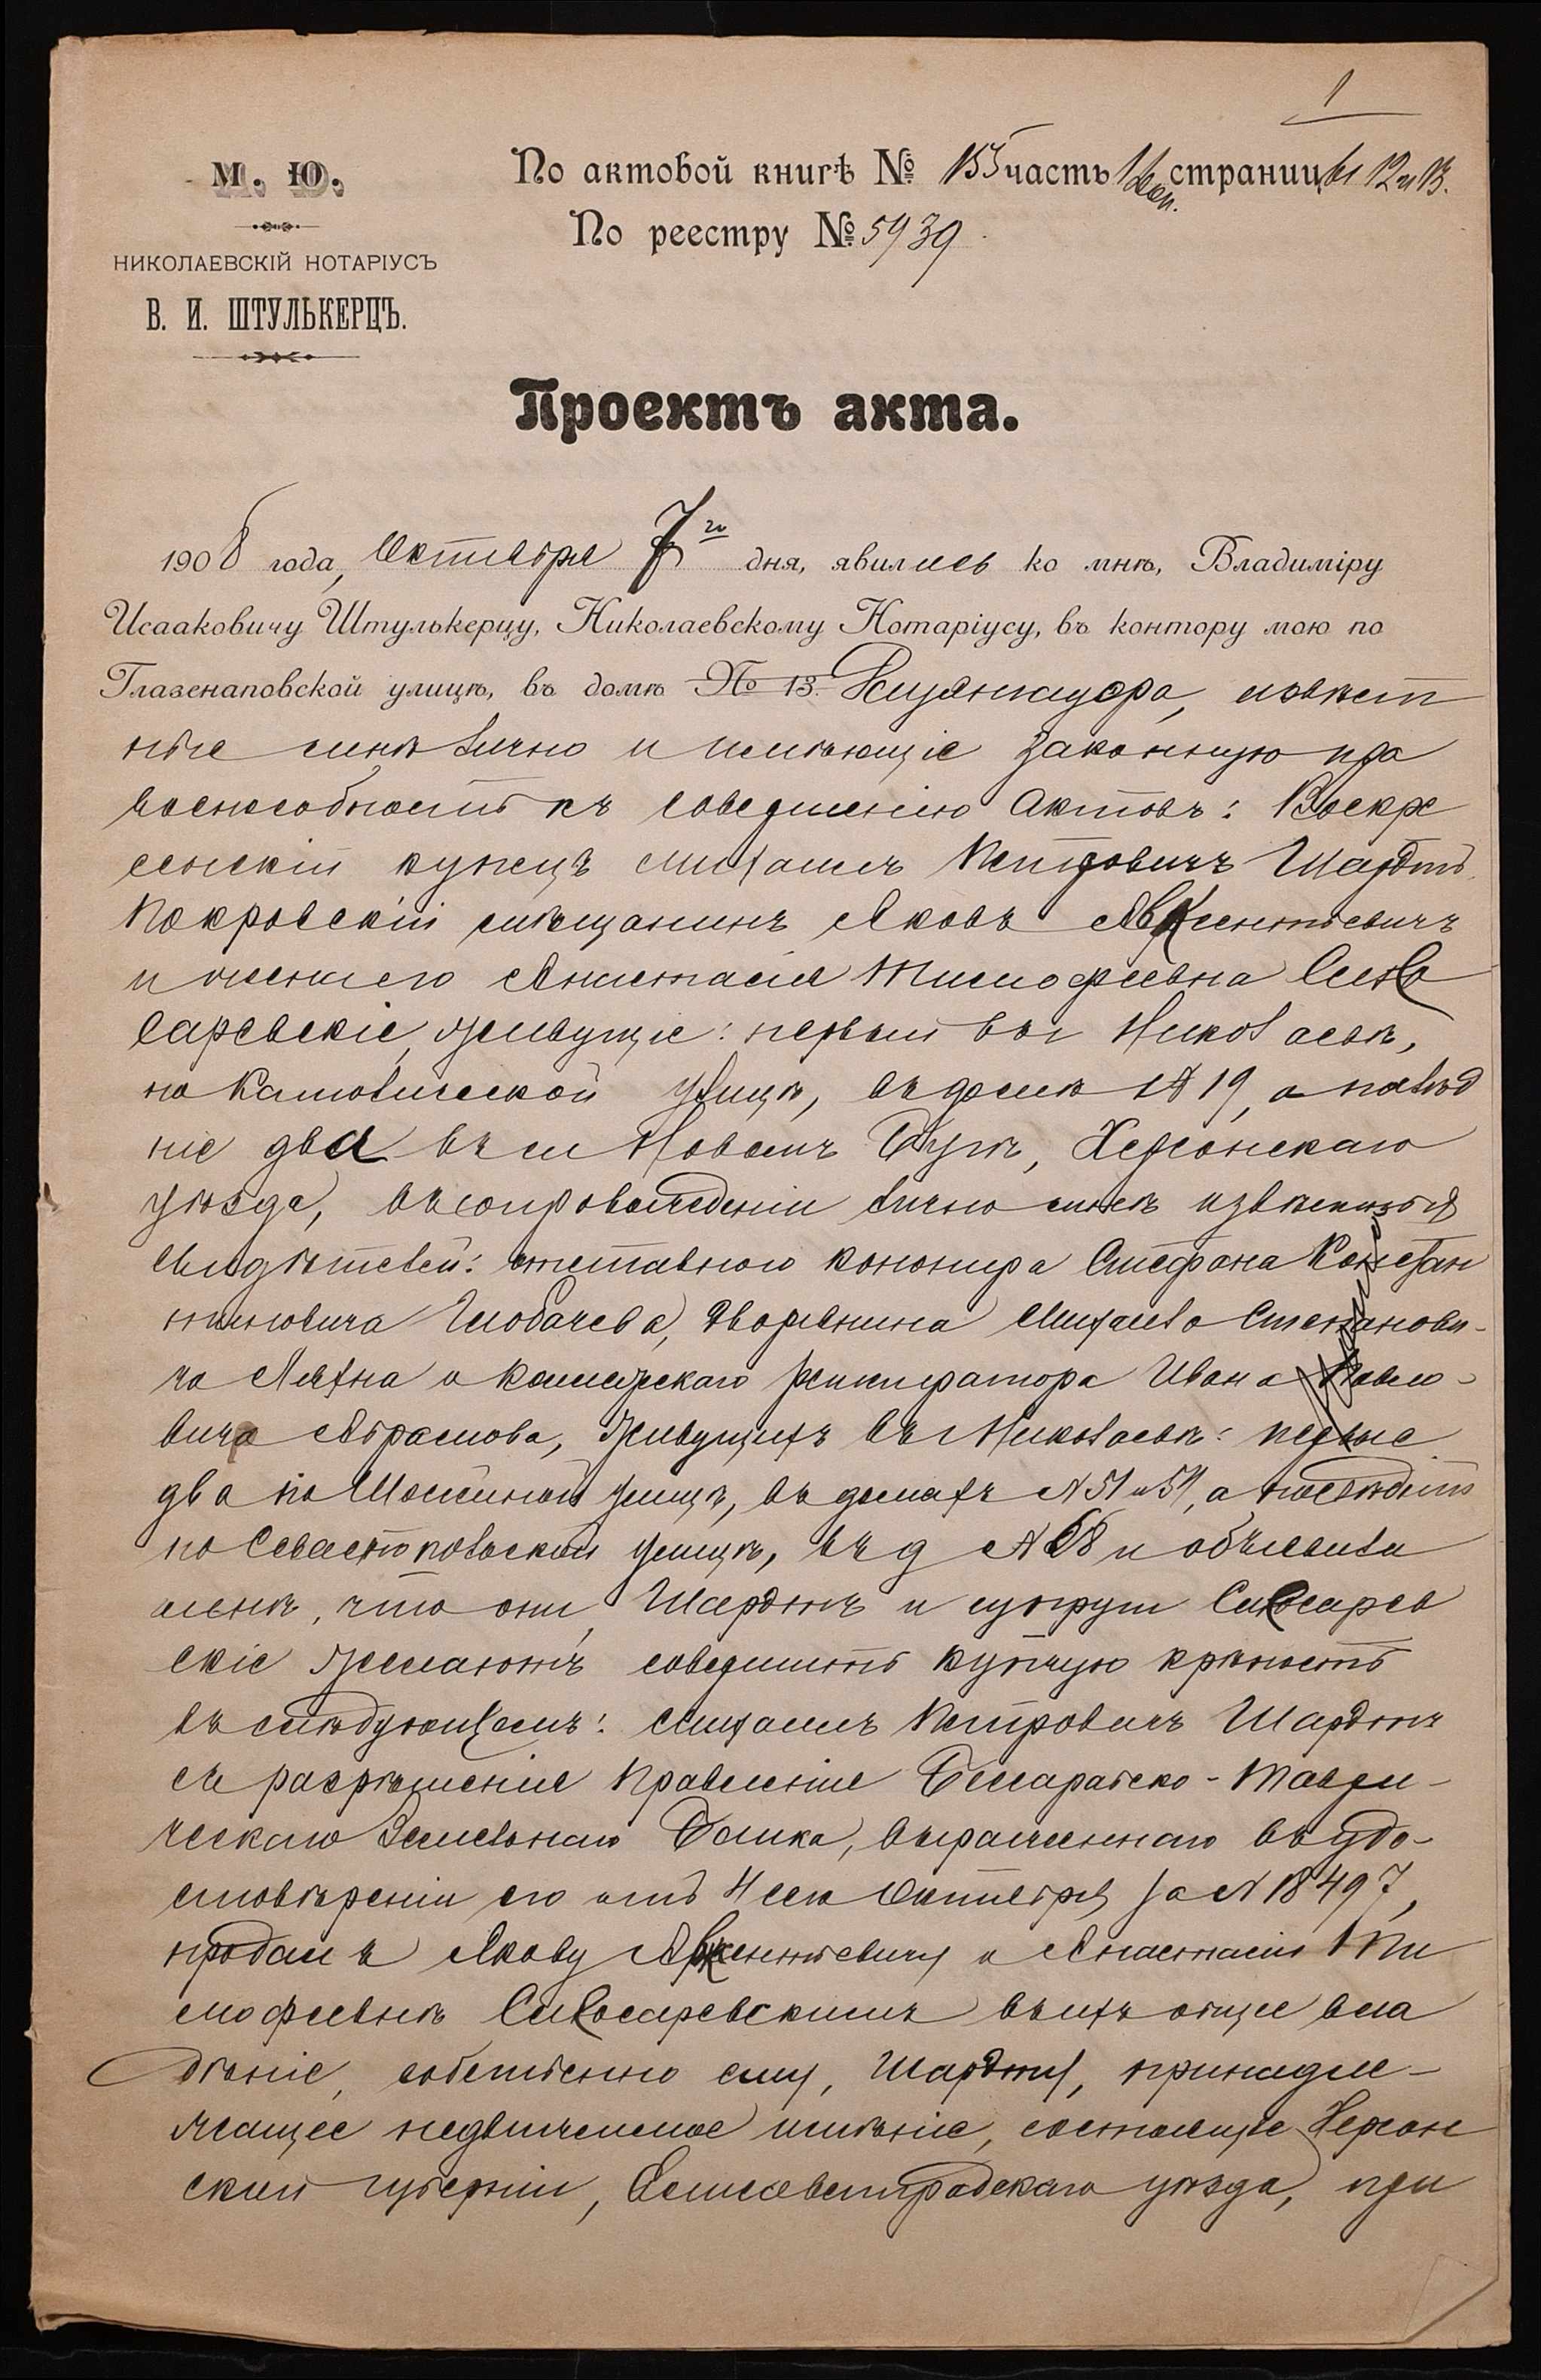 1
М. Ю.
НИКОЛАЕВСКІЙ НОТАРІУСЪ
В. И. ШТУЛЬКЕРЦЪ.
По актовой книгѣ № 155 часть 1 страницы 12 и 13.
По реестру № 5939
Проектъ акта.
1908 года, Октября 7го дня, явились ко мнѣ, Владиміру
Исааковичу Штулькерцу, Николаевскому Нотаріусу, въ контору мою по
Глазенаповской улицѣ, въ домѣ № 13. извѣст
ные мнѣ лично и имѣющіе законную пра
воспособность къ совершенію актовъ: Воскре
сенскій купецъ Михаилъ Петровичъ Шардтъ,
Покровскій мѣщанинъ Яковъ Авксентьевичъ
и жена его Анастасія Тимофеевна Слю
саревскіе, живущіе: первый въ г Николаевѣ,
на Католической улицѣ, въ домѣ № 19, а послѣд
ніе два въ м Новомъ Бугѣ, Херсонскаго
уѣзда, въ сопровожденіи лично мнѣ извѣстныхъ
свидѣтелей: отставного канонира Стефана Констан
тиновича Глобачева, дворянина Михаила Степанови-
ча и Коллежскаго регистратора Ивана Павло-
вича Абрамова, живущихъ въ г Николаевѣ: первые
два по улицѣ, въ домахъ № 51 и 54, а послѣдній
по Севастопольской улицѣ, въ д № 68 и объявили
мнѣ, что они, Шардтъ и супруги Слюсарев
скіе желаютъ совершить купчую крѣпость
въ слѣдующемъ: Михаилъ Петровичъ Шардтъ
съ разрѣшенія Правленія Бессарабско-Таври-
ческаго Земельнаго Банка, выраженнаго въ удо-
стовѣреніи его отъ 4 сего Октября за № 18497,
продалъ Якову Авксентьевичу и Анастасіи Ти
мофеевнѣ Слюсаревскимъ въ ихъ общее вла
дѣніе, собственно ему, Шардту, принадле-
жащее недвижимое имѣніе, состоящее Херсон
ской губерніи, Елисаветградскаго уѣзда, при